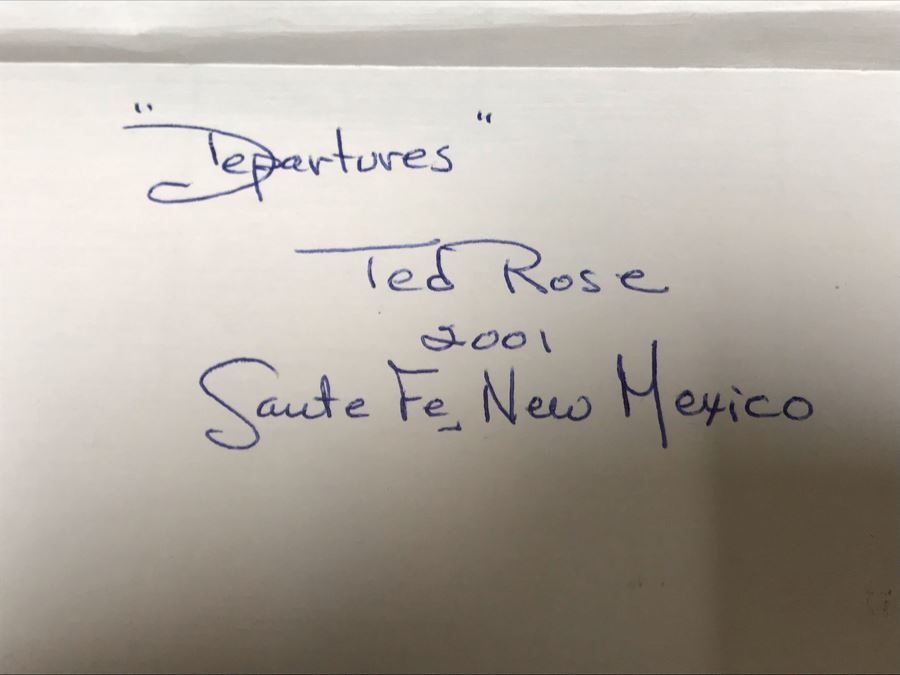 "Departures"
Ted Rose
2001
Sante Fe, New Mexico